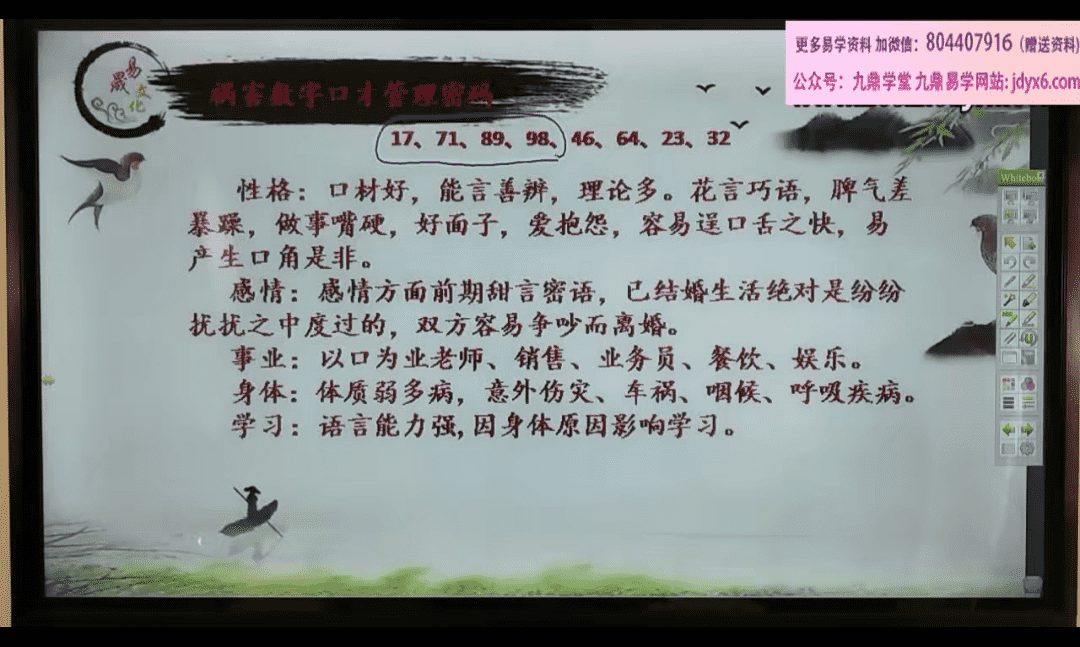 更多易学资料 加微信：804407916（赠送资料）
公众号：九鼎学堂 九鼎易学网站: jdyx6.com
易晟文化
祸害数字口才管理密码
17、71、89、98、46、64、23、32
Whitebo
性格：口材好，能言善辨，理论多。花言巧语，脾气差
暴躁，做事嘴硬，好面子，爱抱怨，容易逞口舌之快，易
产生口角是非。
感情：感情方面前期甜言密语，已结婚生活绝对是纷纷
扰扰之中度过的，双方容易争吵而离婚。
事业：以口为业老师、销售、业务员、餐饮、娱乐。
身体：体质弱多病，意外伤灾、车祸、咽候、呼吸疾病。
学习：语言能力强,因身体原因影响学习。